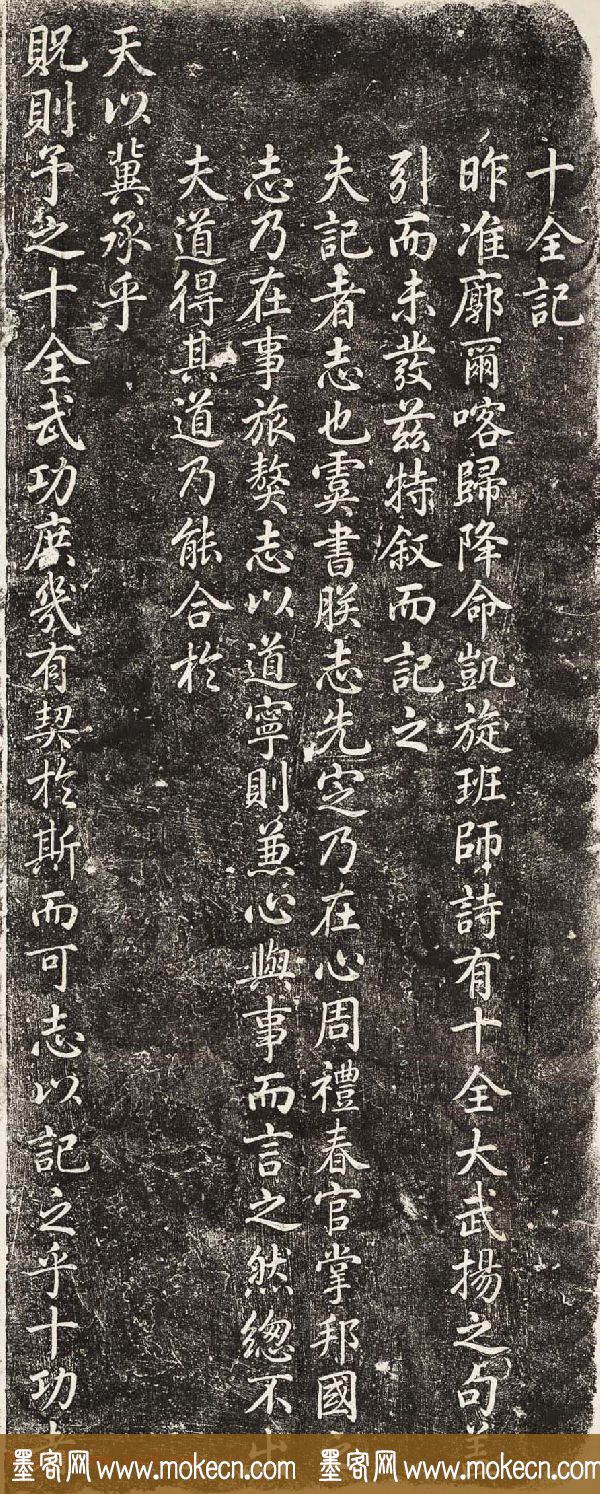 十全記
昨准廓爾喀歸降命凱旋班師詩有十全大武揚之句蓋
引而未發茲特叙而記之
夫記者志也虞書朕志先定乃在心周禮春官掌邦國之
志乃在事旅獒志以道寧則兼心與事而言之然總不出
夫道得其道乃能合於
天以冀承乎
貺則予之十全武功庶幾有契於斯而可志以記之乎十功
墨客网 www.mokecn.com 墨客网 www.mokecn.com